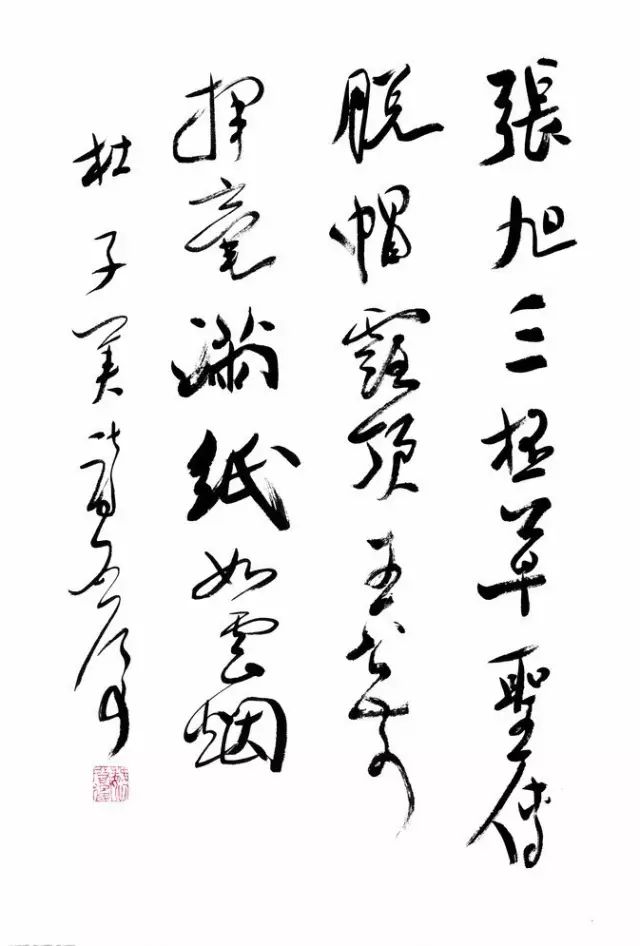 張旭三杯草聖傳
脱帽露頂王公前
揮毫满紙如雲烟
杜子美詩